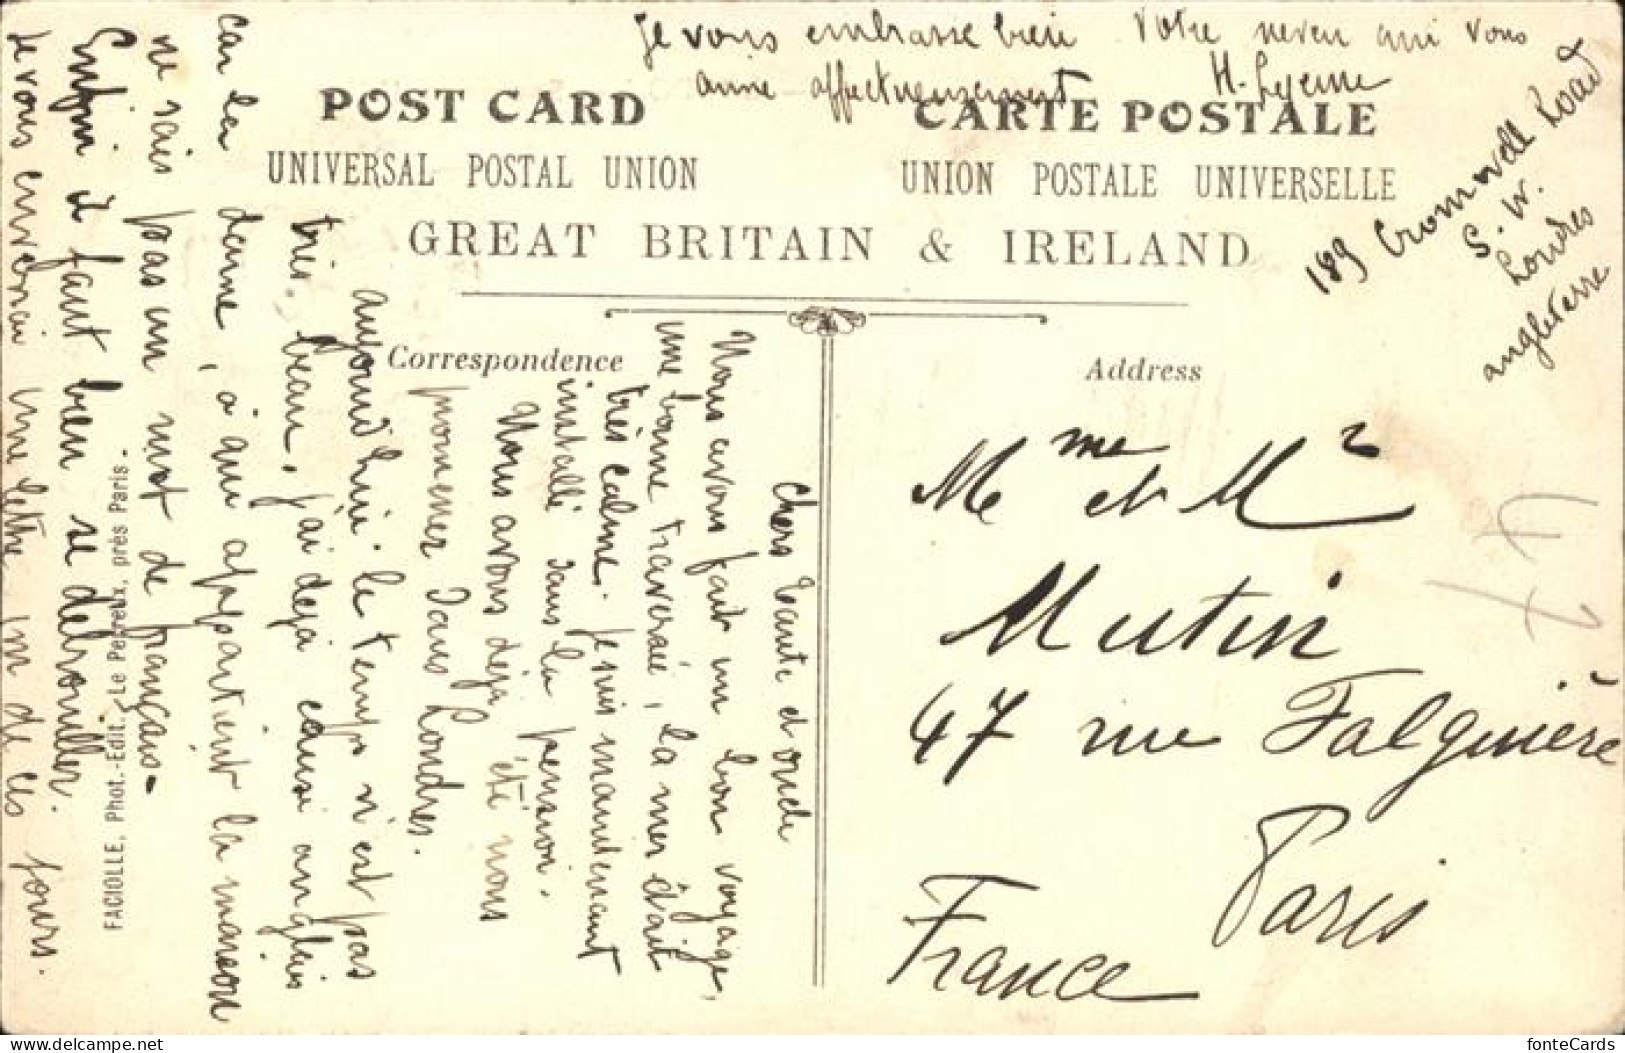 Je vous embrasse bien Votre neveu qui vous
aime affectueusement H. Lejeune
POST CARD CARTE POSTALE
UNIVERSAL POSTAL UNION UNION POSTALE UNIVERSELLE
GREAT BRITAIN & IRELAND
189 Cromwell Road
S. W.
Londres
angleterre
Correspondence
Address
Chers tante et oncle
Nous avons fait un bon voyage,
une bonne traversée, la mer était
très calme. je suis maintenant
installé dans la pension.
Nous avons déjà été nous
promener dans Londres.
aujourd'hui. le temps n'est pas
très beau, j'ai déjà causé anglais
car la dame, à qui appartient la maison
ne sais pas un mot de français-
Enfin il faut bien se débrouiller.
je vous enverrai une lettre un de ces jours.
FACIOLLE, Phot.-Edit. Le Perreux, près Paris.
Mme et Mr
Mutin
47 rue Falguière
Paris
France
www.delcampe.net
fonteCards